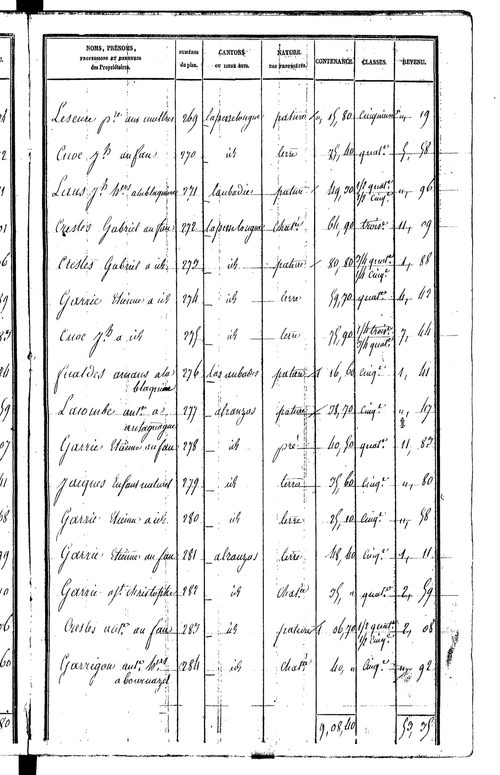 NOMS, PRÉNOMS, PROFESSIONS ET DEMEURES des Propriétaires. NUMÉROS du plan. CANTONS OU LIEUX-DITS. NATURE DES PROPRIÉTÉS. CONTENANCE. CLASSES. REVENU.
269 laperrelongue pature 15, 80 19
Cuoc jh au fau 270 id terre 75, 40 quat.e 5, 58
271 laubadie pature 49, 30 1/2 quat.e 1/2 cinq.e ", 96
Crestes Gabriel au fau 272 laperrelongue Chat.e 61, 90 trois.e 11, 09
Crestes Gabriel a id 273 id pature 80, 80 3/4 quat.e 1/4 cinq.e 1, 88
Garrie Etienne a id 274 id terre 59, 70 quat.e 4, 42
Cuoc jh a id 275 id terre 75, 90 1/4 trois.e 3/4 quat.e 7, 44
amans a la 276 las aubades pature 1 16, 60 cinq.e 1, 41
Lacombe ant.e a 277 alranzas pature 38, 70 cinq.e ", 47
Garrie Etienne au fau 278 id pré 40, 50 quat.e 11, 83
jacques Enfant naturel 279 id terre 35, 60 cinq.e ", 80
Garrie Etienne a id 280 id terre 25, 10 cinq.e ", 58
Garrie Etienne au fau 281 alranzas terre 48, 60 cinq.e 1, 11
Garrie a St christophe 282 id chat.e 35, " quat.e 2, 59
Crestes ant.e au fau 283 id pature 1 06, 70 1/2 quat.e 1/2 cinq.e 2, 08
Garrigou ant.e h.rs 284 id chat.e 40, " cinq.e ", 92
a bournazel
9, 08, 40 53, 35